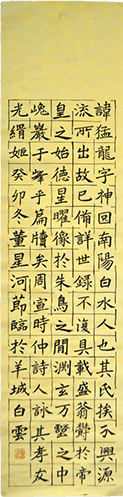 諱猛龍字神回南陽白水人也其氏族分興源
流所出故已備詳世錄不復具載盛蓊鬱於帝
皇之始德星曜像於朱鳥之間淵玄万壑之中
巖于峯乎篇牘矣周宣時仲詩人詠其孝友
光緝姬癸卯冬董星河節臨於羊城白雲